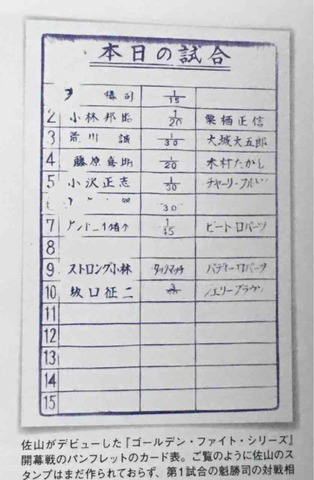 本日の試合
1/15
2 小林邦昭 1/20 栗栖正信
3 荒川誠 1/30 大城大五郎
4 藤原喜明 1/20 木村たかし
5 小沢正志 1/30 チャーリー
30
7 1/45 ピートロバーツ
8
9 ストロング小林 タッグマッチ
10 坂口征二
11
12
13
14
15
佐山がデビューした『ゴールデン・ファイト・シリーズ』
開幕戦のパンフレットのカード表。ご覧のように佐山のス
タンプはまだ作られておらず、第1試合の魁勝司の対戦相